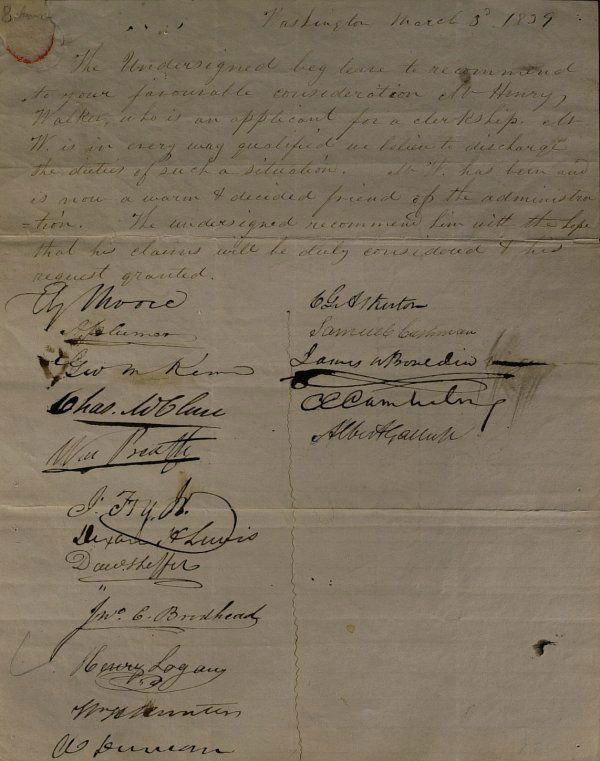 Washington March 3d 1839
The Undersigned beg leave to recommend
to your favourable consideration Mr Henry
Walker, who is an applicant for a clerkship. Mr
W. is in every way qualified we believe to discharge
the duties of such a situation. Mr W. has been and
is now a warm & decided friend of the administra
=tion. The undersigned recommend him with the hope
that his claims will be duly considered & his
request granted.
Ely Moore
Geo M Keim
Chas. McClure
J. Fry Jr.
Dixon H Lewis
Danl. Sheffer
Jno. C. Brodhead
Henry Logan
Wm H Hunter
A Duncan
Samuel Cushman
James
C C Cambreleng
Albert Gallup